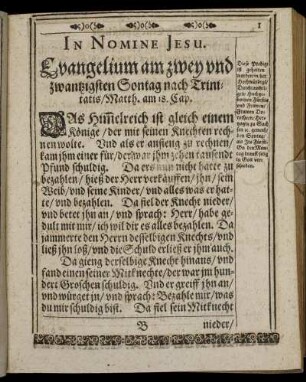 1
IN NOMINE JESU.
Evangelium am zwey vnd
zwantzigsten Sontag nach Trini-
tatis/Matth. am 18. Cap.
DAs Himelreich ist gleich einem
Könige/der mit seinen Knechten rech-
nen wolte. Vnd als er anfieng zu rechnen/
kam jhm einer für/der war jhm zehen tausendt
Pfund schuldig. Da ers nun nicht hatte zu
bezahlen/hieß der Herr verkäuffen/jhn/sein
Weib/vnd seine Kinder/vnd alles was er hat-
te/vnd bezahlen. Da fiel der Knecht nieder/
vnd betet jhn an/vnd sprach: Herr/habe ge-
dult mit mir/ich wil dir es alles bezahlen. Da
jammerte den Herrn desselbigen Knechts/vnd
ließ jhn loß/vnd die Schuld erließ er jhm auch.
Da gieng derselbige Knecht hinaus/vnd
fand einen seiner Mitknechte/der war jm hun-
dert Groschen schuldig. Vnd er greiff jhn an/
vnd würget jn/vnd sprach: Bezahle mir/was
du mir schuldig bist. Da fiel sein Mitknecht
B nieder/
Diese Predigt